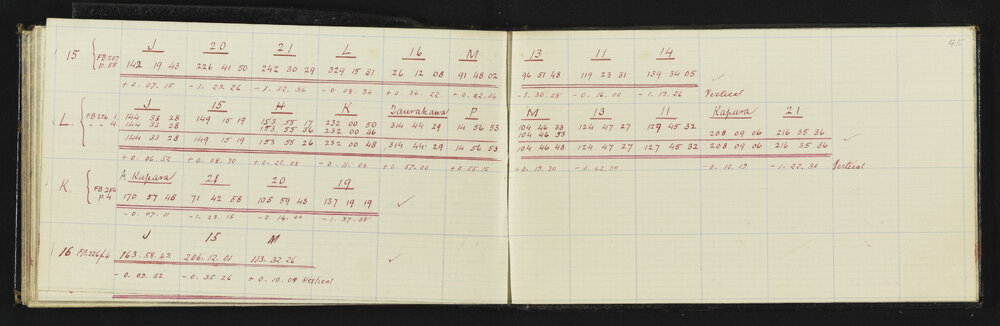 45
J 20 21 L 16 M 13 11 14
15 { FB 207 p. 55 142 19 43 226 41 50 242 30 29 329 15 31 26 12 08 91 48 02 96 51 48 119 23 31 139 34 05
+ 0. 07. 15 - 1. 23. 26 - 1. 32. 34 - 0. 08. 34 + 0. 34. 22 + 0. 22. 04 - 1. 30. 08 - 0. 16. 00 - 1. 19. 26 Vertical
J 15 H K Taurakawa P M 13 11 Rapara 21
FB 226. 1 144 33 28 149 15 19 153 55 17 232 00 50 314 44 29 14 56 53 104 46 33 124 47 27 127 45 32 208 09 06 216 35 36
L. { " " 4 144 33 28 153 55 36 232 00 46 104 46 53
144 33 28 149 15 19 153 55 26 232 00 48 314 44 29 14 56 53 104 46 43 124 47 27 127 45 32 208 09 06 216 35 36
+ 0. 06. 52 + 0. 08. 30 + 0. 22. 08 - 0. 11. 04 + 0. 57. 00 + 0. 55. 15 + 0. 19. 30 - 0. 42. 20 - 0. 12. 19 - 1. 22. 30 Vertical
A Rapara 21 20 19
K. { FB 254 p. 4 170 57 48 71 42 58 105 59 43 137 19 19
- 0. 07. 11 - 1. 23. 15 - 2. 14. 00 - 1. 37. 08
J 15 M
16 FB 226 p6 163. 58. 43 206. 12. 01 113. 32. 26
- 0. 09. 52 - 0. 35. 26 + 0. 10. 09 Vertical